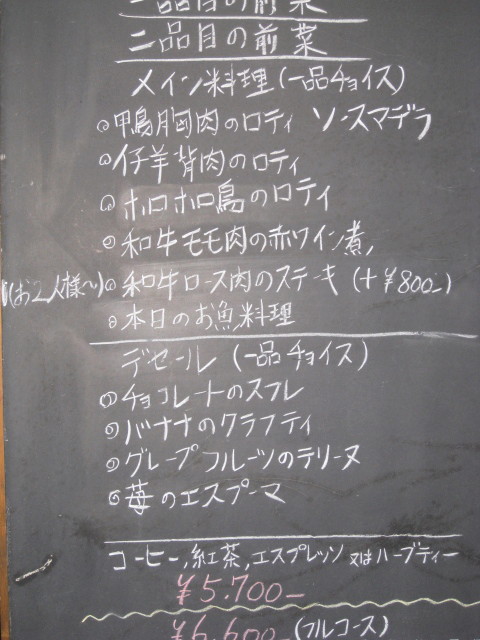 一品目の前菜
二品目の前菜
メイン料理(一品チョイス)
◎鴨胸肉のロティ ソースマデラ
◎仔羊背肉のロティ
◎ホロホロ鳥のロティ
◎和牛モモ肉の赤ワイン煮
(お2人様〜)◎和牛ロース肉のステーキ(+¥800-)
◎本日のお魚料理
デセール(一品チョイス)
◎チョコレートのスフレ
◎バナナのクラフティ
◎グレープフルーツのテリーヌ
◎苺のエスプーマ
コーヒー,紅茶,エスプレッソ 又はハーブティー
¥5.700-
¥6.600-(フルコース)